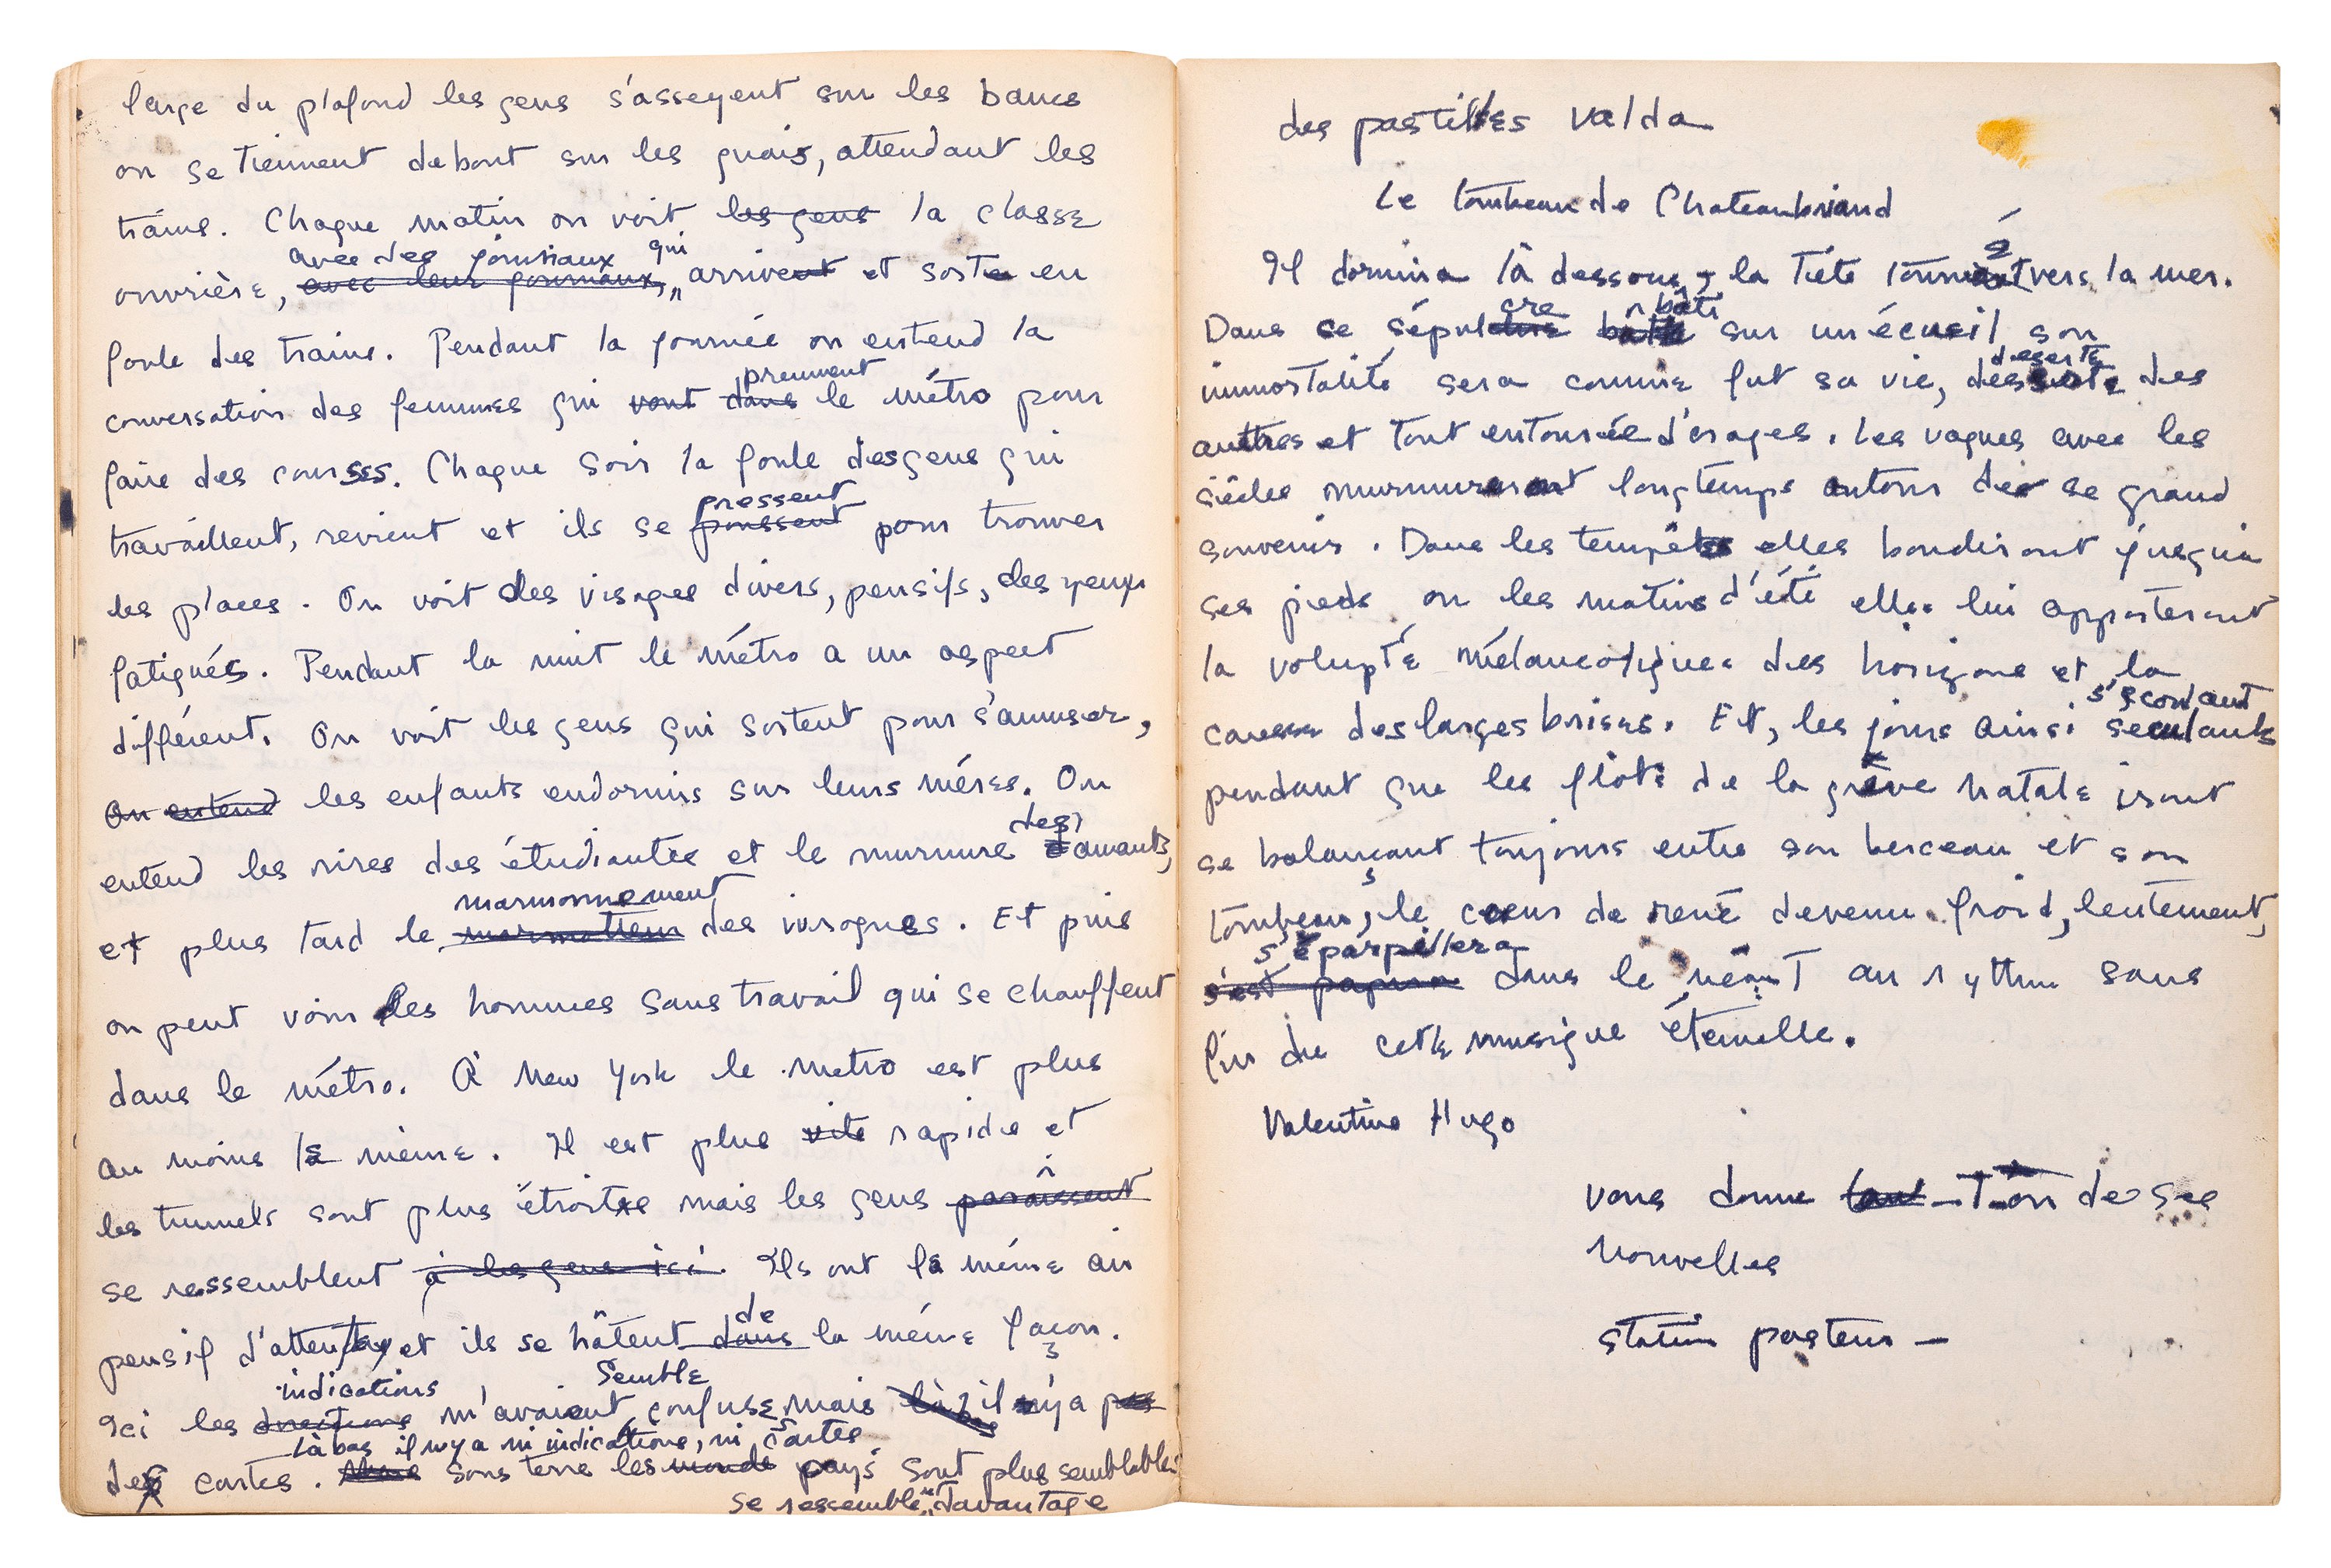 large du plafond les gens s'asseyent sur les bancs
on se tiennent debout sur les quais, attendant les
trains. Chaque matin on voit les gens la classe
avec des journaux qui
ouvrière, avec leur journaux, arrivent et sorte en
foule des trains. Pendant la journée on entend la
prennent
conversation des femmes qui vont dans le métro pour
faire des courses. Chaque soir la foule des gens qui
pressent
travaillent, revient et ils se poussent pour trouver
les places. On voit des visages divers, pensifs, des yeux
fatigués. Pendant la nuit le métro a un aspect
différent. On voit les gens qui sortent pour s'amuser,
On entend les enfants endormis sur leurs mères. On
des
entend les rires des étudiantes et le murmure d'amants,
marmonnement
et plus tard le des ivrognes. Et puis
on peut voir les hommes sans travail qui se chauffent
dans le métro. À New York le metro est plus
au moins le même. Il est plus vite rapide et
les tunnels sont plus étroites mais les gens paraîssent
se ressemblent à les gens ici. Ils ont la même air
de
pensif d'attente et ils se hâtent dans la même façon.
indications semble
Ici les directions m'avaient confuse mais là bas il n'y a pas
là bas il n'y a ni indications, ni cartes
des cartes. sous terre les monde pays sont plus semblables
se ressemble davantage
des pastilles Valda
Le tombeau de Chateaubriand
é
Il dormira là dessous, la tiéte tourné vers la mer.
cre bâti
Dans ce sépul sur un écueil son
déserte
immortalité sera comme fut sa vie, des
autres et tout entourée d'orages. Les vagues avec les
siècles murmureront longtemps autour de se grand
souvenir. Dans les tempêtes elles bondiront jusqu'a
ses pieds ou les matins d'été elles lui apporteront
la volupté mélancolique des horizons et la
s'écoulant
caresse des larges brises. Et, les jours ainsi
pendant que les flots de la grève natale iront
se balançant toujours entre son berceau et son
tombeau, le coeur de rené devenu froid, lentement,
s'éparpillera
s'est dans le néant au rythme sans
fin de cette musique éternelle.
Valentine Hugo
vous donne t-on de ses
nouvelles
station pasteur —